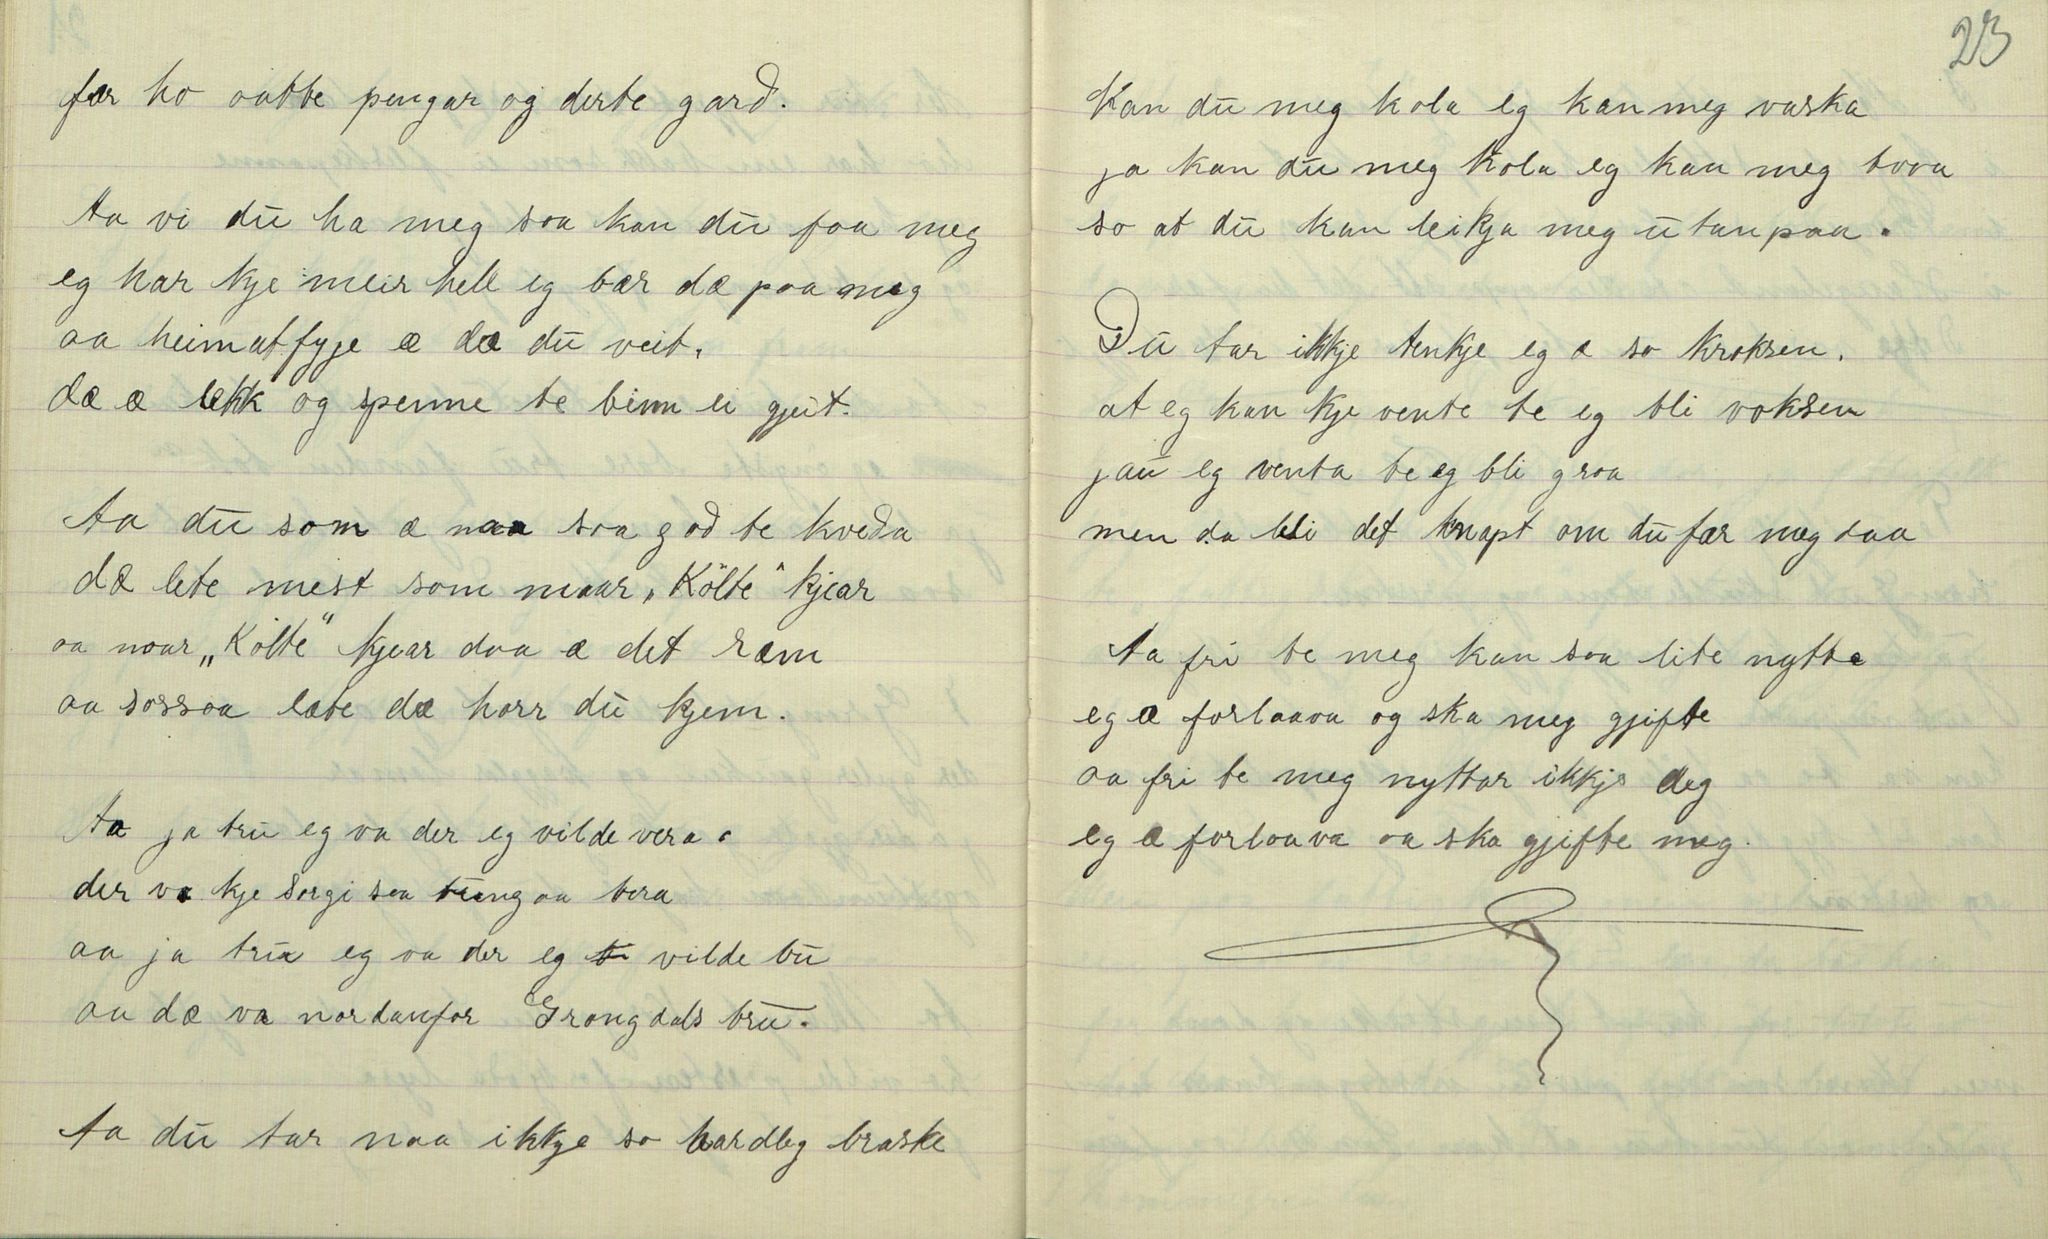 fær ho aatte pengar og derte garð.
Aa vi du ha meg saa kan du faa meg
eg har kje meir hell eg bær dæ paa meg
aa heimatfyje æ dæ du veit,
dæ æ lekk og spenne te binn ei gjeit.
Aa du som æ naa saa goð te kveða
dæ lete mest som maar „Költe" kjear
aa naar „Költe" kjear daa æ det ræm
aa sossaa læte dæ horr du kjem.
Aa ja tru eg va der eg vilde vera.
der va kje sorgi saa tung aa bera
aa ja trua eg va der eg vilde bu
aa dæ va nordanfor Grongdals bru.
Aa du tar naa ikkje so hardleg braske
23
Kan du meg kola eg kan meg vaska
ja kan du meg kola eg kan meg tvoa
so at du kan leikja meg utanpaa.
Du tar ikkje tenkje eg æ so kroksen,
at eg kan kje vente te eg bli voksen
jau eg venta te eg bli graa
men da bli det knapt om du fær meg daa
Aa fri te meg kan saa lite nytte
eg æ forlaava og ska meg gjifte
aa fri te meg nyttar ikkje deg
eg æ forlaava aa ska gjifte meg.